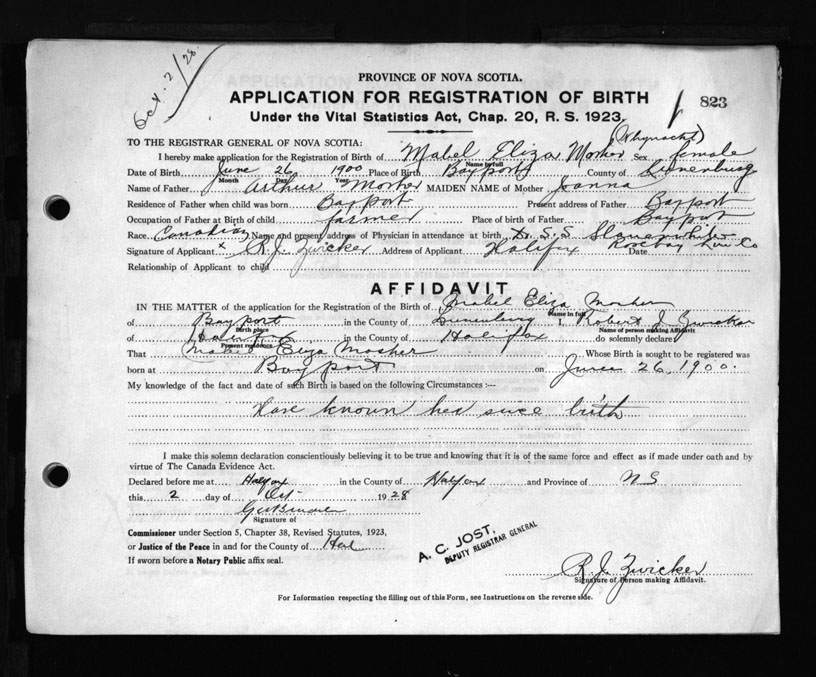 Oct. 2/28.
PROVINCE OF NOVA SCOTIA.
APPLICATION FOR REGISTRATION OF BIRTH
823
Under the Vital Statistics Act, Chap. 20, R. S. 1923.
(Whynacht)
TO THE REGISTRAR GENERAL OF NOVA SCOTIA:
I hereby make application for the Registration of Birth of Mabel Eliza Mosher Sex female
Name in full
Date of Birth June 26 1900 Place of Birth Bayport County of Lunenburg
Month Day Year
Name of Father Arthur Mosher MAIDEN NAME of Mother Joanna
Residence of Father when child was born Bayport Present address of Father Bayport
Occupation of Father at Birth of child farmer Place of birth of Father Bayport
Race Canadian Name and present address of Physician in attendance at birth Dr. S.S. Slauenwhite
Signature of Applicant x R. J. Zwicker Address of Applicant Halifax Date Rosebay Lun Co
Relationship of Applicant to child
AFFIDAVIT
IN THE MATTER of the application for the Registration of the Birth of Mabel Eliza Mosher
Name in full
of Bayport in the County of Lunenburg I, Robert J Zwicker
Birth place Name of person making Affidavit
of Halifax in the County of Halifax do solemnly declare
Present residence
That Mabel Eliza Mosher Whose Birth is sought to be registered was
born at Bayport on June 26, 1900.
My knowledge of the fact and date of such Birth is based on the following Circumstances :—
Have known her since birth
I make this solemn declaration conscientiously believing it to be true and knowing that it is of the same force and effect as if made under oath and by
virtue of The Canada Evidence Act.
Declared before me at Halifax in the County of Halifax and Province of N S
this 2 day of Oct 1928
Signature of
Commissioner under Section 5, Chapter 38, Revised Statutes, 1923,
or Justice of the Peace in and for the County of Hal
If sworn before a Notary Public affix seal.
A. C. JOST,
DEPUTY REGISTRAR GENERAL
R. J. Zwicker
Signature of Person making Affidavit.
For Information respecting the filling out of this Form, see Instructions on the reverse side.